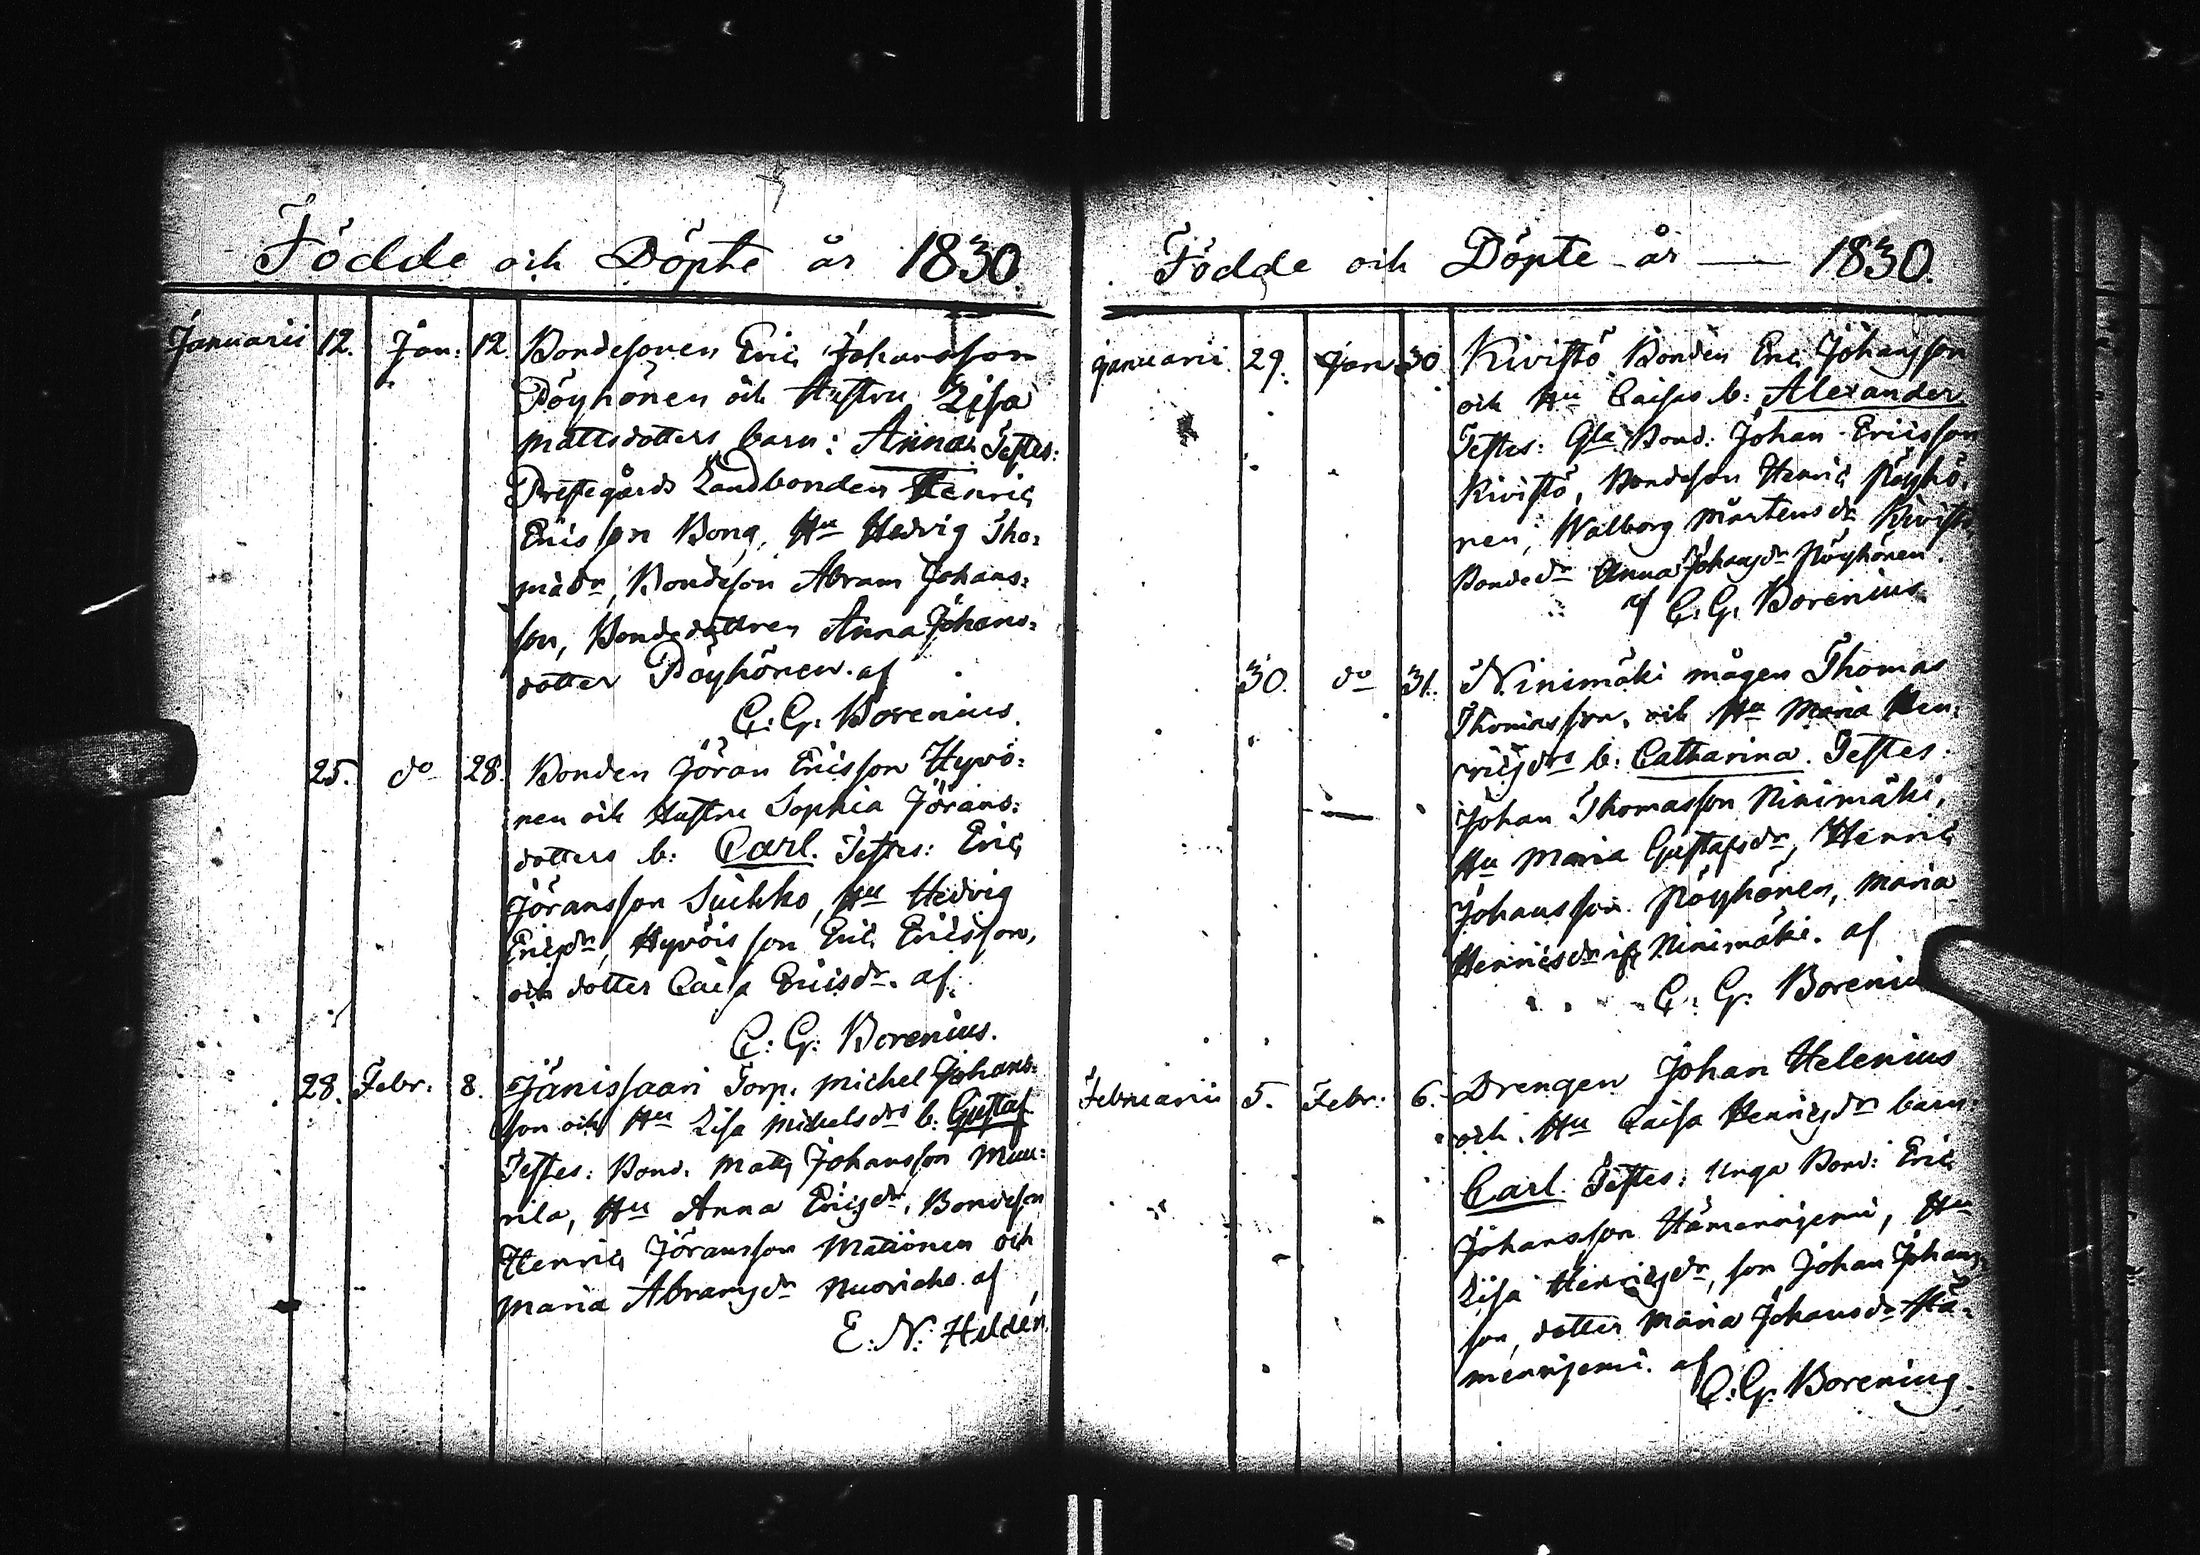 Födde och Döpte år 1830.
Januarii 12. Jan: 12. Bondesonen Eric Johansson
Pöyhönen och Hustru Lisa
Mattsdotters barn: Anna. Testes:
Prestegårds Landbonden Henric
Ericsson Bong, Hu Hedvig Tho:
mædr, Bondeson Abram Johans:
son, Bondedottren Anna Johans:
dotter Pöyhönen. af
C: G: Borenius.
25. do 28. Bonden Jöran Ericsson Hyvö:
nen och Hustru Sophia Jörans:
dotters b: Carl. Testes: Eric
Jöransson Suikko, Hu Hedvig
Ericsdr, Hyvöis son Eric Ericsson,
och dotter Caisa Ericsdr. af
C: G: Borenius.
28. Febr: 8. Jänissaari Torp. Michel Johans:
son och Hu Lisa Michelsdrs b: Gustaf
Testes: Bond. Matts Johansson Muu:
rila, Hu Anna Ericsdr, Bondeson
Henric Jöransson Matiönen och
Maria Abramsdr Nuoricho. af
E: N: Heldén.
Födde och Döpte år — 1830.
Januarii 29. Jan 30 Kivistö Bonden Eric Johansson
och Hu Caisas b: Alexander
Testes: Gla Bond: Johan Ericsson
Kivistö, Bondeson Henric Pöyhö:
nen, Walborg Mårtensdr Kivistö,
Bondedr Anna Johansdr Pöyhönen.
af C. G. Borenius.
30. do 31. Ninimäki mågen Thomas
Thomasson, och Hu Maria Hen:
ricsdrs b: Catharina. Testes:
Johan Thomasson Ninimäki,
Hu Maria Gustafsdr, Henric
Johansson Pöyhönen, Maria
Henricsdr Ninimäki. af
C: G: Boreniu
Februarii 5. Febr: 6. Drengen Johan Helenius
och Hu Caisa Henricsdrs barn:
Carl. Testes: Unga Bond: Eric
Johansson Hämeenjemi, Hu
Lisa Henricsdr, son Johan Johans
son, dotter Maria Johansdr Hä:
menjemi. af
C. G: Borenius.